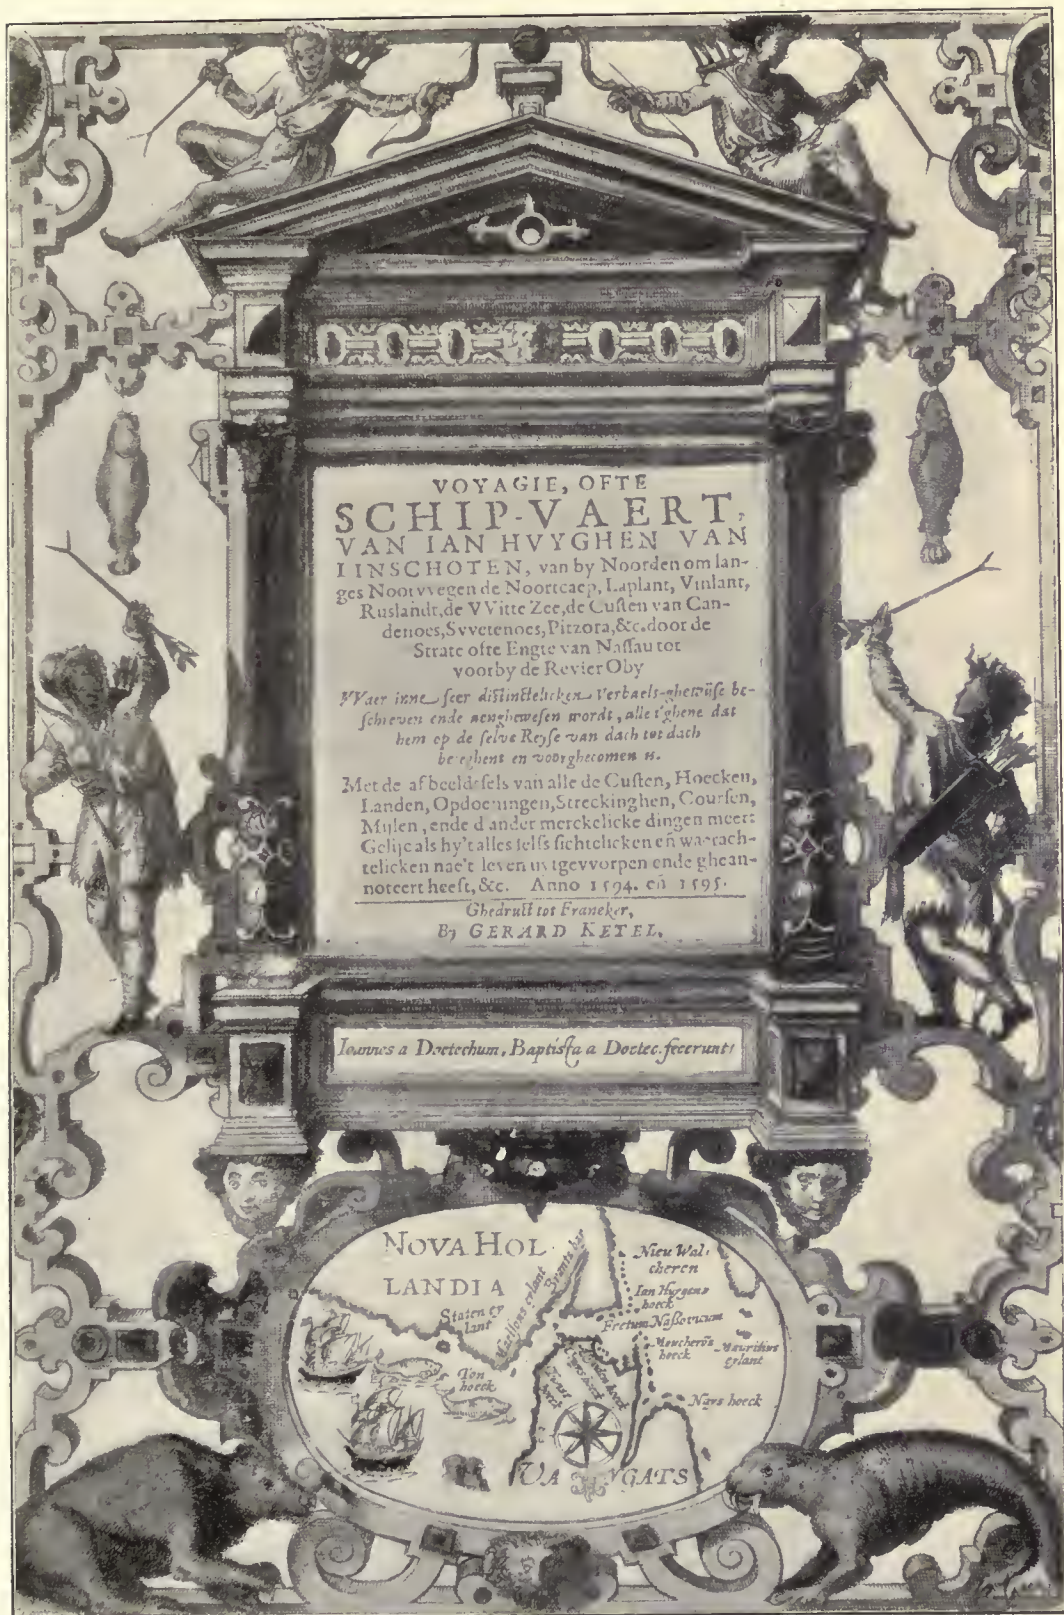 VOYAGIE, OFTE
SCHIP-VAERT,
VAN IAN HVYGHEN VAN
LINSCHOTEN, van by Noorden om lan-
ges Noorvvegen de Noortcaep, Laplant, Vinlant,
Ruslandt, de VVitte Zee, de Custen van Can-
denoes, Svvetenoes, Pitzora, &c. door de
Strate ofte Engte van Nassau tot
voorby de Revier Oby
VVaer inne seer distinctelicken Verbaels-ghewijse be-
schreven ende aenghewesen wordt, alle t'ghene dat
hem op de selve Reyse van dach tot dach
bejeghent en voorghecomen is.
Met de afbeeldsels van alle de Custen, Hoecken,
Landen, Opdoeningen, Streckinghen, Coursen,
Mijlen, ende d'ander merckelicke dingen meer:
Gelijc als hy't alles selfs sichtelicken en̄ waerach-
telicken nae't leven uytgevvorpen ende ghean-
noteert heeft, &c. Anno 1594. en̄ 1595.
Ghedruct tot Franeker,
By GERARD KETEL.
Ioannes a Doetechum, Baptista a Doetec. fecerunt
NOVA HOL
LANDIA
Staten ey
lant
Brants bay
Nieu Wal
cheren
Ian Huygens
hoeck
Fretum Nassovicum
Moucherōs
hoeck
Mauritius
eylant
Ton
hoeck
Nays hoeck
VA YGATS